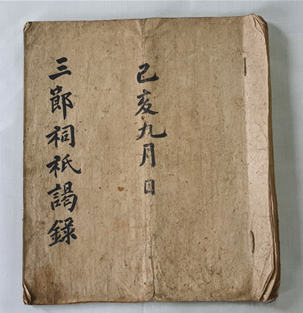 己亥九月日
三節祠祗謁錄